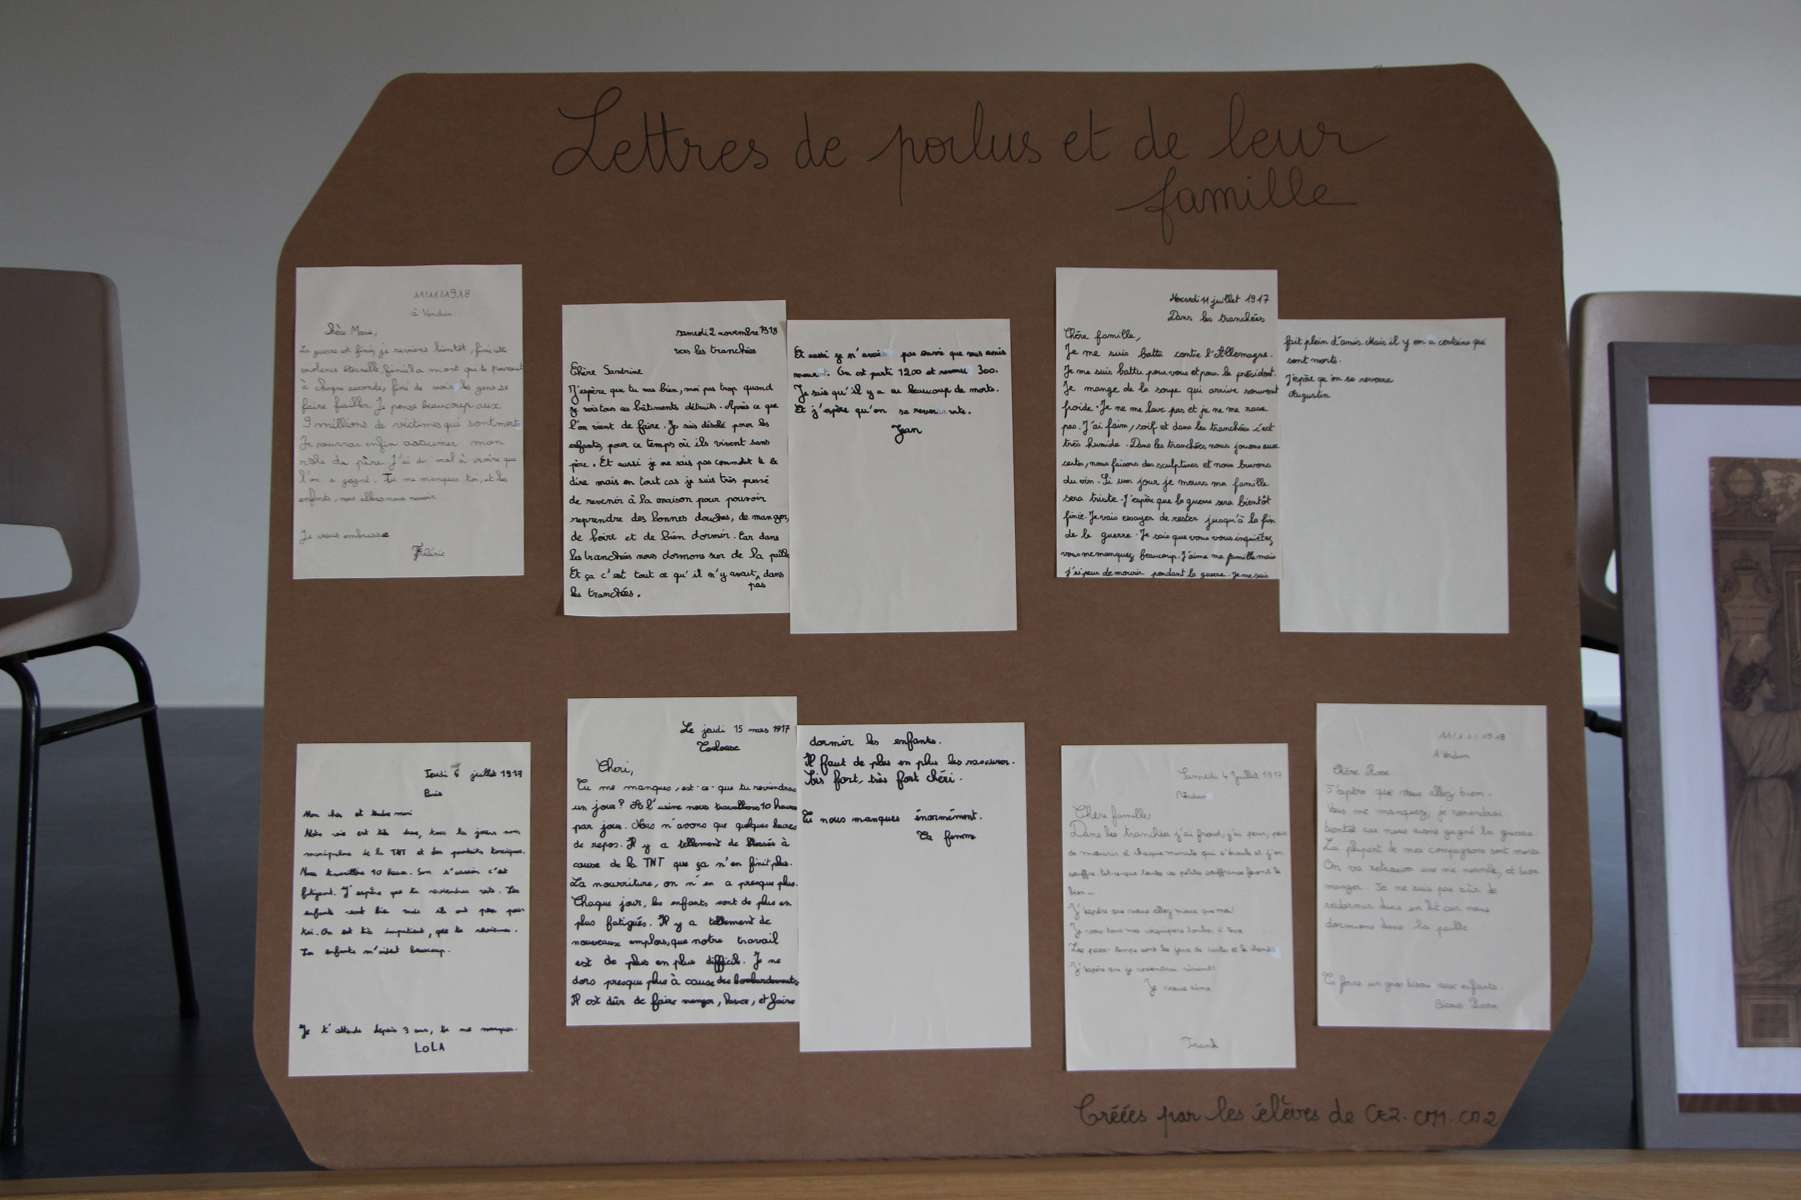 Lettres de poilus et de leur
famille
11/11/1918
à Verdun
Chère Marie,
La guerre est finie, je reviens bientôt, finie cette
violence éternelle, fini la mort qui te poursuit
à chaque seconde, fini de voir les gens se
faire fusiller. Je pense beaucoup aux
9 millions de victimes qui sont morts
Je pourrai enfin assumer mon
rôle de père. J'ai du mal à croire que
l'on a gagné. Tu me manques toi, et les
enfants, nous allons nous revoir.
Je vous embrasse
samedi 2 novembre 1918
vers les tranchées
Chère Sandrine
J'espère que tu vas bien, moi pas trop quand
je vois tous ces bâtiments détruits. Après ce que
l'on vient de faire. Je suis désolé pour les
enfants, pour ce temps où ils vivent sans
père. Et aussi je ne sais pas comment te le
dire mais en tout cas je suis très pressé
de revenir à la maison pour pouvoir
reprendre des bonnes douches, de manger,
de boire et de bien dormir. Car dans
les tranchées nous dormons sur de la paille
Et ça c'est tout ce qu'il n'y avait pas dans
les tranchées.
Et aussi je n'avais pas envie que mes amis
meurent. On est parti 1200 et revenu 300.
Je sais qu'il y a eu beaucoup de morts.
Et j'espère qu'on se reverra vite.
Jean
Mercredi 11 juillet 1917
Dans les tranchées
Chère famille,
Je me suis battu contre l'Allemagne.
Je me suis battu pour vous et pour le président.
Je mange de la soupe qui arrive souvent
froide. Je ne me lave pas et je ne me rase
pas. J'ai faim, soif et dans les tranchées c'est
très humide. Dans les tranchées nous jouons aux
cartes, nous faisons des sculptures et nous buvons
du vin. Si un jour je meurs ma famille
sera triste. J'espère que la guerre sera bientôt
finie. Je vais essayer de rester jusqu'à la fin
de la guerre. Je sais que vous vous inquiétez,
vous me manquez beaucoup. J'aime ma famille mais
j'ai peur de mourir pendant la guerre. Je me suis
fait plein d'amis. Mais il y en a certains qui
sont morts.
J'espère qe on se reverra
Augustin
Jeudi 6 juillet 1917
Paris
Mon cher et tendre mari
Notre vie est très dure, tous les jours nous
manipulons de la TNT et des produits toxiques.
Nous travaillons 10 heures. Son c'est
fatigant. J'espère que tu reviendras vite. Les
enfants vont bien mais ils ont peur pour
toi. On est très impatient, que tu reviennes.
Les enfants m'aident beaucoup.
Je t'attends depuis 3 ans, tu me manques.
LOLA
Le jeudi 15 mars 1917
Toulouse
Cheri,
Tu me manques, est-ce-que tu reviendras
un jour? A l'usine nous travaillons 10 heures
par jour. Nous n'avons que quelques heures
de repos. Il y a tellement de blessés à
cause de la TNT que ça n'en finit plus.
La nourriture, on n'en a presque plus.
Chaque jour, les enfants sont de plus en
plus fatigués. Il y a tellement de
nouveaux emplois, que notre travail
est de plus en plus difficile. Je ne
dors presque plus à cause des bombardements
Il est dûr de faire manger, laver, et faire
dormir les enfants.
Il faut de plus en plus les rassurer.
Sois fort, très fort chéri.
Tu nous manques énormément.
Ta femme
Samedi 4 Juillet 1917
Verdun
Chère famille,
Dans les tranchées j'ai froid, j'ai peur, peur
de mourir à chaque minute qui s'écoule et j'en
souffre. Est-ce-que toutes ces petites souffrances feront le
bien
J'espère que vous allez mieux que moi!
Je vois tous mes coéquipiers tomber à terre
Les passe-temps sont les jeux de cartes et le chant
J'espère que je reviendrai vivant!
Je vous aime
Frank
11/11/1918
A Verdun
Chère Rose
J'espère que vous allez bien.
Vous me manquez, je reviendrai
bientôt car nous avons gagné la guerre.
La plupart de mes compagnons sont morts
On va retrouver une vie normale, et bien
manger. Je ne suis pas sûr de
redormir dans un lit car nous
dormions dans la paille
fais un gros bisou aux enfants.
Créées par les élèves de CE2-CM1-CM2